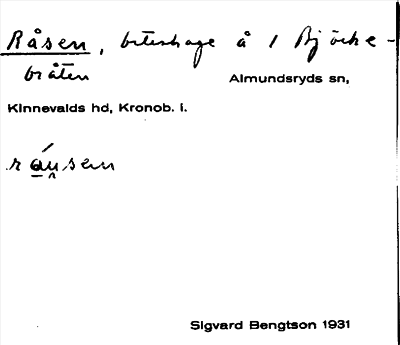 Råsen, beteshage å 1 Björke-
bråten
Almundsryds sn,
Kinnevalds hd, Kronob. l.
råu̯sen
Sigvard Bengtson 1931